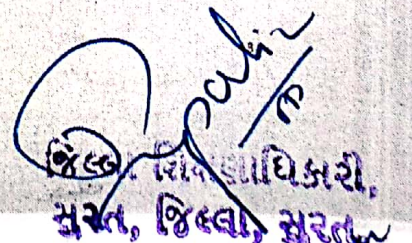 જિલ્લા શિક્ષણાધિકારી,
સુરત, જિલ્લા, સુરત